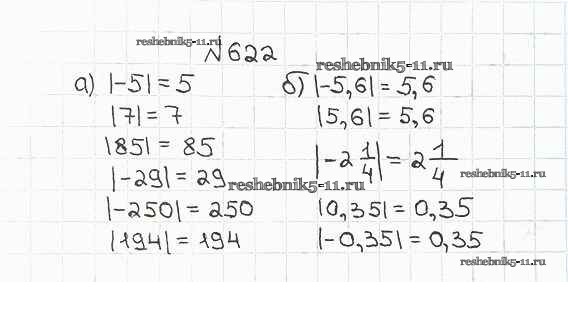 reshebnik5-11.ru
№622
reshebnik5-11.ru
а) |-5| = 5
|7| = 7
|85| = 85
|-29| = 29
reshebnik5-11.ru
|-250| = 250
|194| = 194
б) |-5,6| = 5,6
|5,6| = 5,6
|-2 1/4| = 2 1/4
reshebnik5-11.ru
|0,35| = 0,35
|-0,35| = 0,35
reshebnik5-11.ru